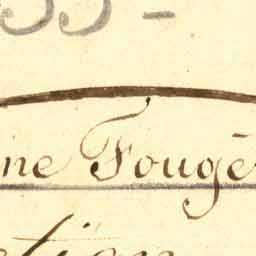 33 -
ne Fougè
ction